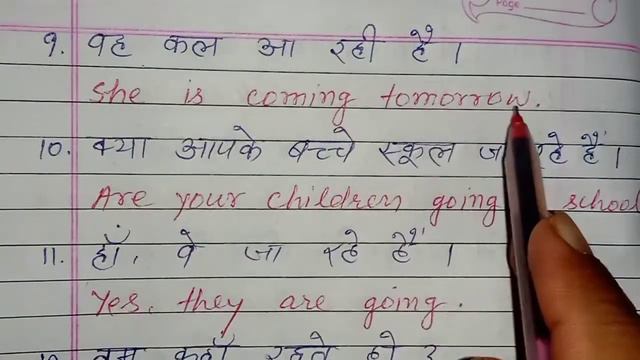 Page
9. वह कल आ रही है ।
She is coming tomorrow.
10. क्या आपके बच्चे स्कूल जा रहे हैं ।
Are your children going school
11. हाँ, वे जा रहे हैं ।
Yes, they are going.
तुम कहाँ रहते हो ?